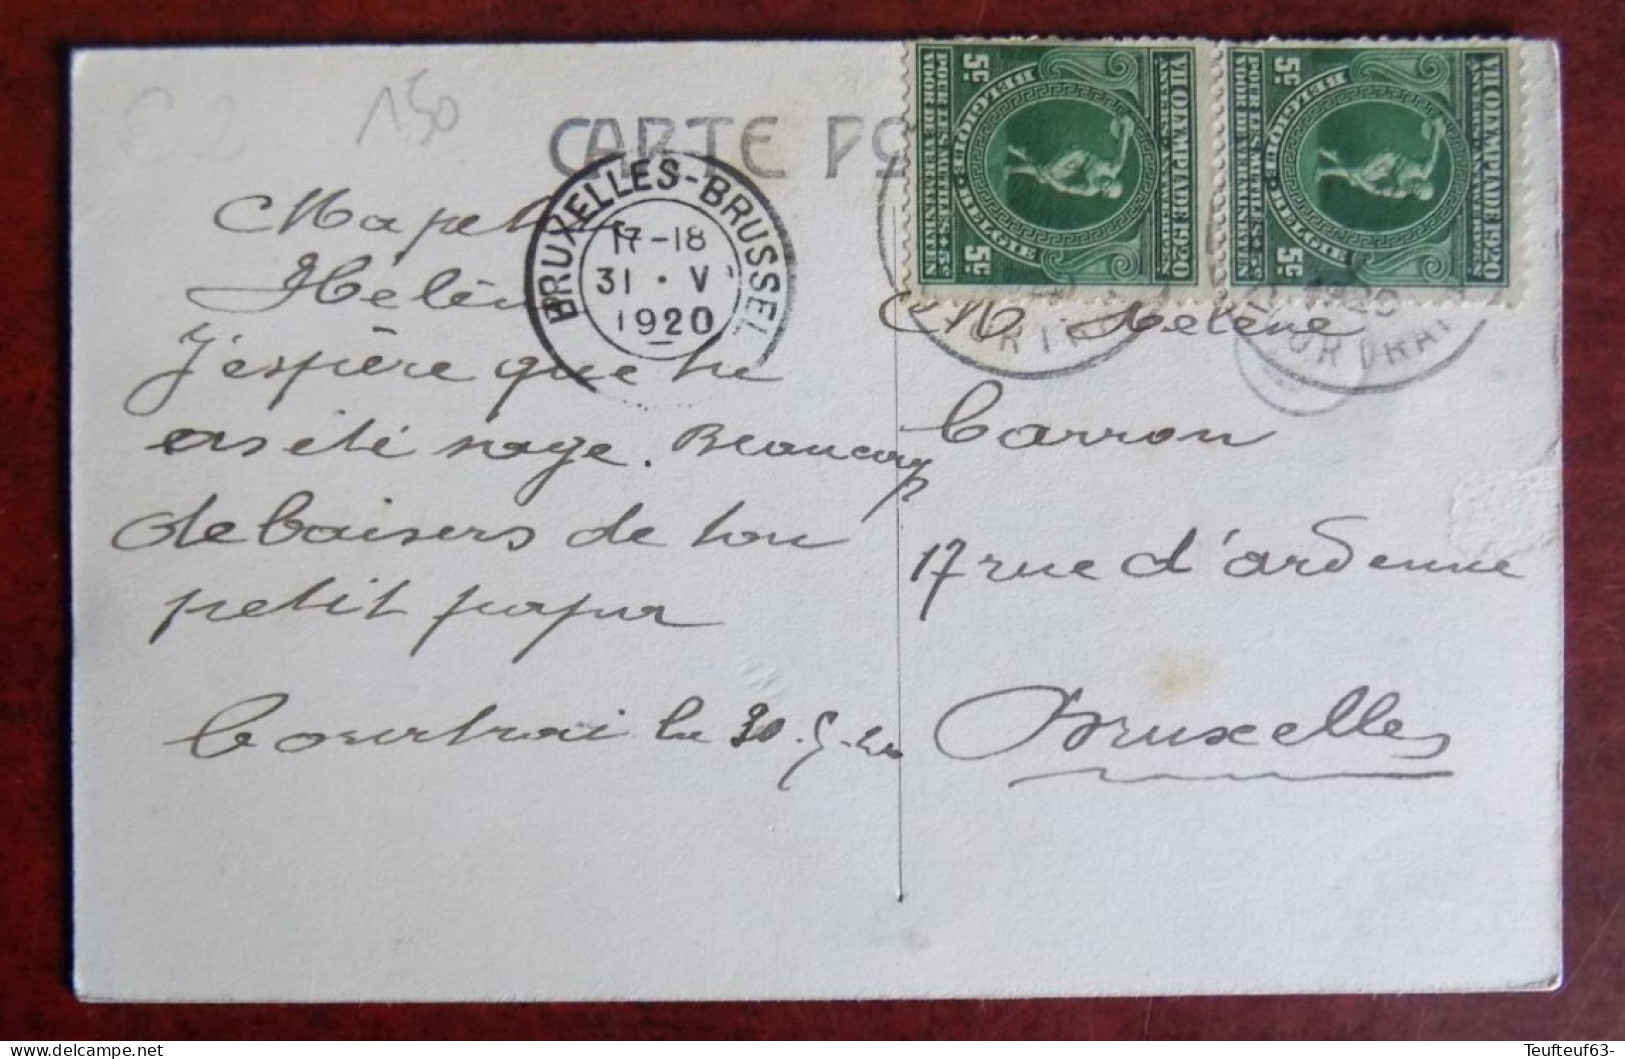 150
CARTE PO
Ma petite
Hélène
J'espère que tu
as été sage. Beaucoup
de baisers de ton
petit papa
Courtrai le 30-5-20
BRUXELLES-BRUSSEL
17-18
31 · V
1920
VII OLYMPIADE 1920
ANVERS · ANTWERPEN
BELGIQUE · BELGIË
5c 5c
POUR LES MUTILÉS · 5c
VOOR DE VERMINKTEN
VII OLYMPIADE 1920
ANVERS · ANTWERPEN
BELGIQUE · BELGIË
5c 5c
POUR LES MUTILÉS · 5c
VOOR DE VERMINKTEN
Hélène
Carron
17 rue d'ardenne
Bruxelles
Teufteuf63-